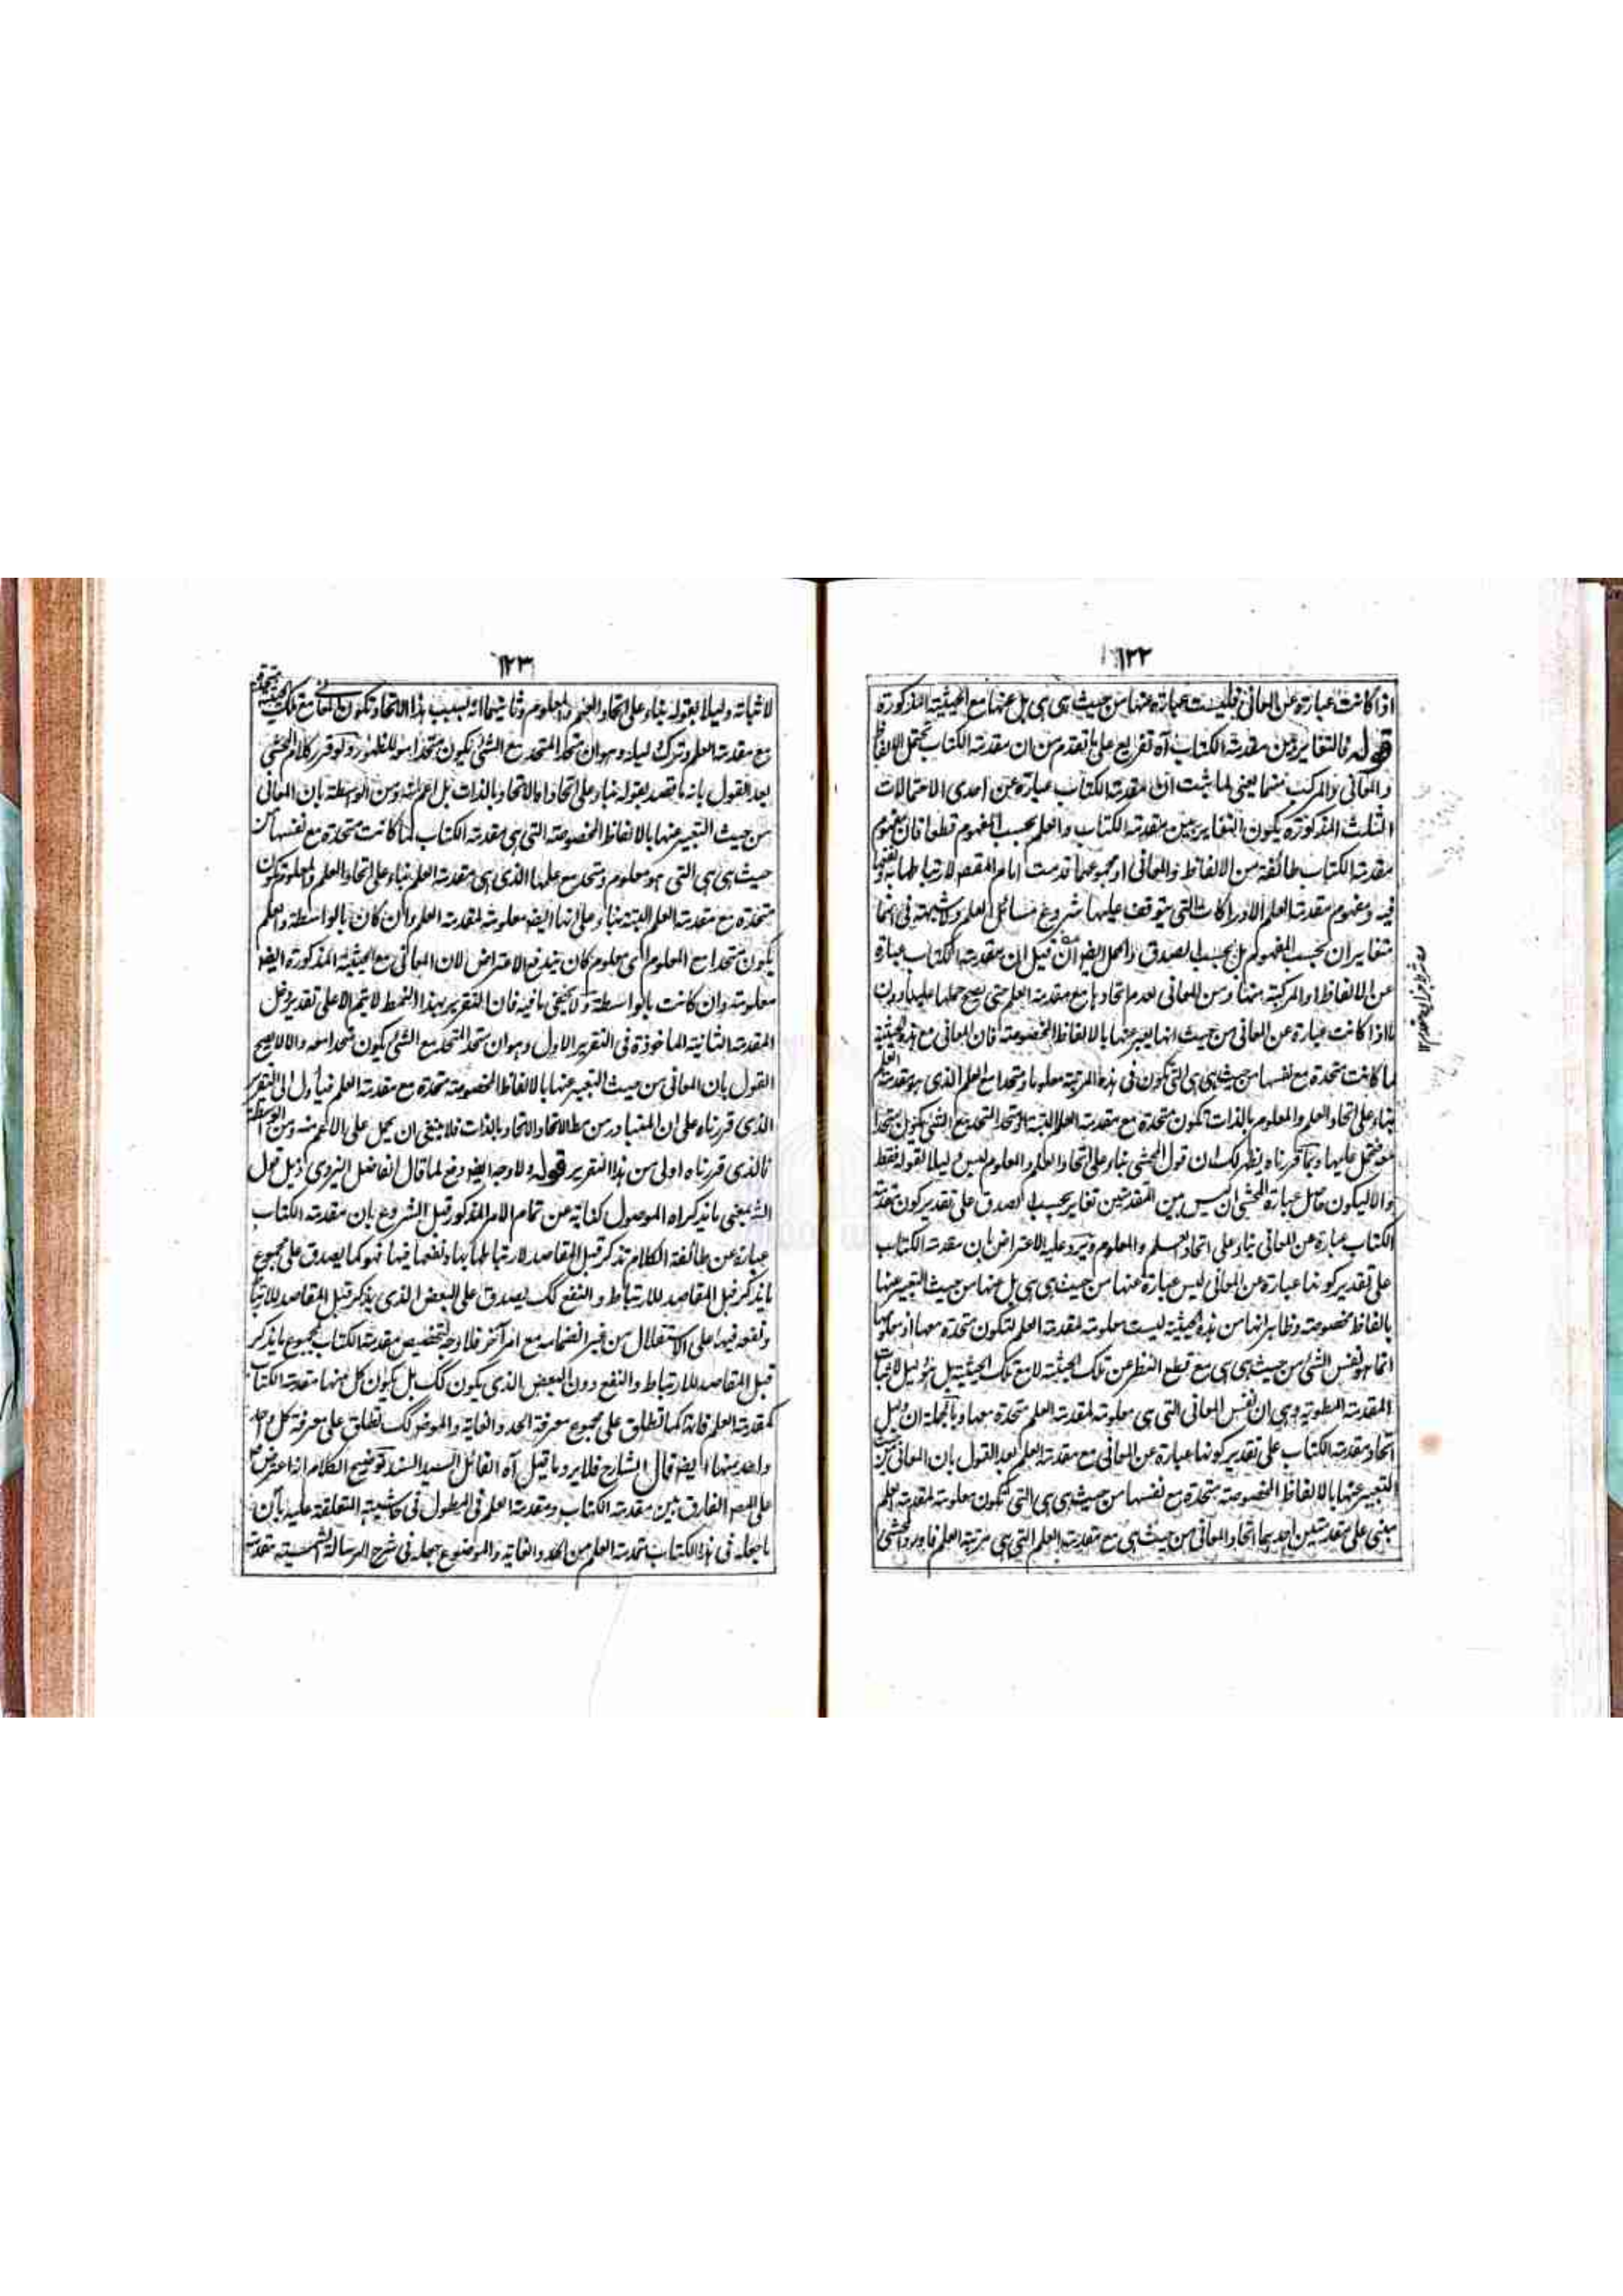 ١٢٢
اذا كانت عبارة عن المعانى فليست عبارة عنها من حيث هى هى بل عنها مع الحيثية المذكورة
قوله فالتغاير بين مقدمة الكتاب آه تفريع على ما تقدم من ان مقدمة الكتاب تحتمل الالفاظ
والمعانى والمركب منهما يعنى لما ثبت ان مقدمة الكتاب عبارة عن احدى الاحتمالات
الثلث المذكورة يكون التغاير بين مقدمة الكتاب والعلم بحسب المفهوم قطعا فان مفهوم
مقدمة الكتاب طائفة من الالفاظ والمعانى او مجموعهما قدمت امام المقصد لارتباطها به ونفعها
فيه ومفهوم مقدمة العلم الادراكات التى يتوقف عليها شروع مسائل العلم ولا شبهة فى انهما
متغايران بحسب المفهوم بل بحسب الصدق والحمل ايضا ان قيل ان مقدمة الكتاب عبارة
عن الالفاظ او المركبة منها ومن المعانى لعدم اتحادها مع مقدمة العلم حتى يصح حملها عليها دون
ما اذا كانت عبارة عن المعانى من حيث انها يعبر عنها بالالفاظ المخصوصة فان المعانى مع هذه الحيثية
لما كانت متحدة مع نفسها من حيث هى هى التى تكون فى هذه المرتبة معلوما ومتحدا مع العلم الذى هو مقدمة العلم
بناء على اتحاد العلم والمعلوم بالذات تكون متحدة مع مقدمة العلم البتة اذ متحد المتحد مع الشئ يكون متحدا
معه فتحمل عليها وبما قررناه يظهر لك ان قول المحشى بناء على اتحاد العلم والمعلوم ليس دليلا لقوله فقط
والا ليكون حاصل عبارة المحشى ان ليس بين المقدمتين تغاير بحسب الصدق على تقدير كون مقدمة
الكتاب عبارة عن المعانى بناء على اتحاد العلم والمعلوم ويرد عليه الاعتراض بان مقدمة الكتاب
على تقدير كونها عبارة عن المعانى ليس عبارة عنها من حيث هى هى بل عنها من حيث التعبير عنها
بالفاظ مخصوصة وظاهر انها من هذه الحيثية ليست معلومة لمقدمة العلم لتكون متحدة معها اذ معلومها
انما هو نفس الشئ من حيث هى هى مع قطع النظر عن تلك الحيثية لا مع تلك الحيثية بل هو دليل لاثبات
المقدمة المطوية وهى ان نفس المعانى التى هى معلومة لمقدمة العلم متحدة معها وبالجملة ان دليل
اتحاد مقدمة الكتاب على تقدير كونها عبارة عن المعانى مع مقدمة العلم بعد القول بان المعانى من حيث
التعبير عنها بالالفاظ المخصوصة متحدة مع نفسها من حيث هى هى التى تكون معلومة لمقدمة العلم
مبنى على مقدمتين احديهما اتحاد المعانى من حيث هى مع مقدمة العلم التى هى مرتبة العلم فاورد المحشى
١٢٣
لاثباته دليلا بقوله بناء على اتحاد العلم والمعلوم وثانيهما انه بسبب هذا الاتحاد تكون المعانى مع تلك الحيثية متحدة
مع مقدمة العلم وترك دليله وهو ان متحد المتحد مع الشئ يكون متحدا معه للظهور ولو قرر كلام المحشى
بعد القول بانه ما قصد بقوله بناء على اتحاد الاتحاد بالذات بل اعم منه ومن الواسطة بان المعانى
من حيث التعبير عنها بالالفاظ المخصوصة التى هى مقدمة الكتاب لما كانت متحدة مع نفسها من
حيث هى هى التى هو معلوم ومتحد مع علمها الذى هى مقدمة العلم بناء على اتحاد العلم والمعلوم تكون
متحدة مع مقدمة العلم البتة بناء على انها ايضا معلومة لمقدمة العلم وان كان بالواسطة والعلم
يكون متحدا مع المعلوم اى معلوم كان يندفع الاعتراض لان المعانى مع الحيثية المذكورة ايضا
معلومة وان كانت بالواسطة ولا يخفى ما فيه فان التقرير بهذا النمط لا يتم الا على تقدير دخل
المقدمة الثانية الماخوذة فى التقرير الاول وهو ان متحد المتحد مع الشئ يكون متحدا معه والا لا يصح
القول بان المعانى من حيث التعبير عنها بالالفاظ المخصوصة متحدة مع مقدمة العلم فيأول الى التقرير
الذى قررناه على ان المتبادر من مطلق الاتحاد الاتحاد بالذات فلا ينبغى ان يحمل على الاعم منه ومن الواسطة
فالذى قررناه اولى من هذا التقرير قوله ولا وجه ايضا دفع لما قال الفاضل اليزدى ذيل قول
الشارح يعنى ما يذكر اه الموصول كناية عن تمام الامر المذكور قبل الشروع بان مقدمة الكتاب
عبارة عن طائفة الكلام تذكر قبل المقاصد لارتباطها بها ونفعها فيها فهو كما يصدق على مجموع
ما يذكر قبل المقاصد للارتباط والنفع كك يصدق على البعض الذى يذكر قبل المقاصد للارتباط
ونفعه فيها على الاستقلال من غير انضمامه مع امر آخر فلا وجه لتخصيص مقدمة الكتاب بمجموع ما يذكر
قبل المقاصد للارتباط والنفع دون البعض الذى يكون كك بل يكون كل منها مقدمة الكتاب
كمقدمة العلم فانه كما تطلق على مجموع معرفة الحد والغاية والموضوع كك تطلق على معرفة كل واحد
واحد منها ايضا قال الشارح فلا يرد ما قيل آه القائل السيد السند توضيح الكلام انه اعترض
على المص الفارق بين مقدمة الكتاب ومقدمة العلم فى المطول فى حاشيته المتعلقة عليه بان
ما جعله فى هذا الكتاب مقدمة العلم من الحد والغاية والموضوع جعله فى شرح الرسالة الشمسية مقدمة